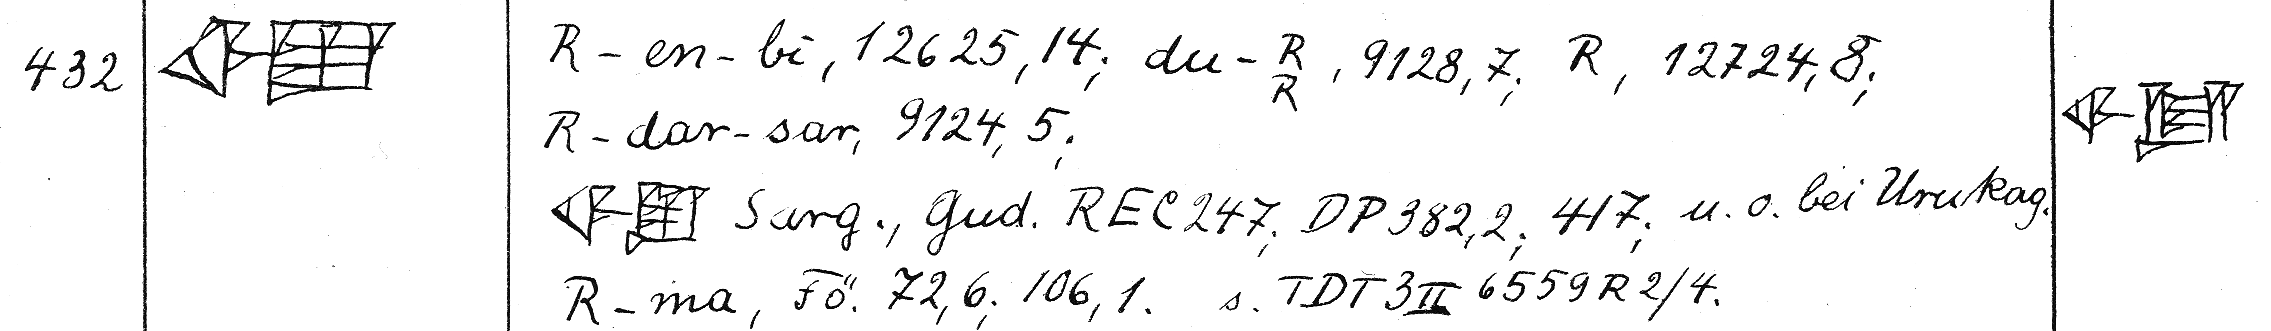 432 R - en - bi, 12625,14; du - R/R, 9128,7; R, 12724,8;
R - dar - sar, 9124,5;
Sarg., Gud. REC 247; DP 382,2; 417; u. o. bei Urukag.
R - ma, Fö. 72,6; 106,1. s. TDT 3 II 6559 R 2/4.